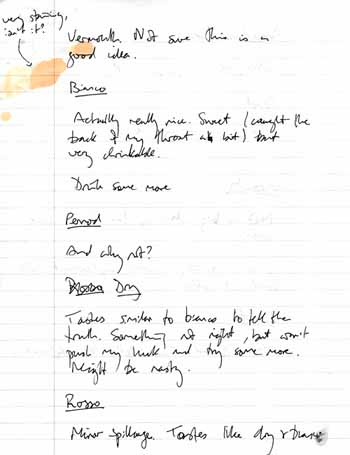 very staining,
isn't it?
Vermouth. Not sure this is a
good idea.
Bianco
Actually really nice. Sweet (caught the
back of my throat a bit) but
very drinkable.
Drink some more
Pernod
And why not?
Rosso Dry
Tastes similar to bianco to tell the
truth. Something not right, but won't
push my luck and try some more.
Might be nasty.
Rosso
Minor spillage. Tastes like dry &